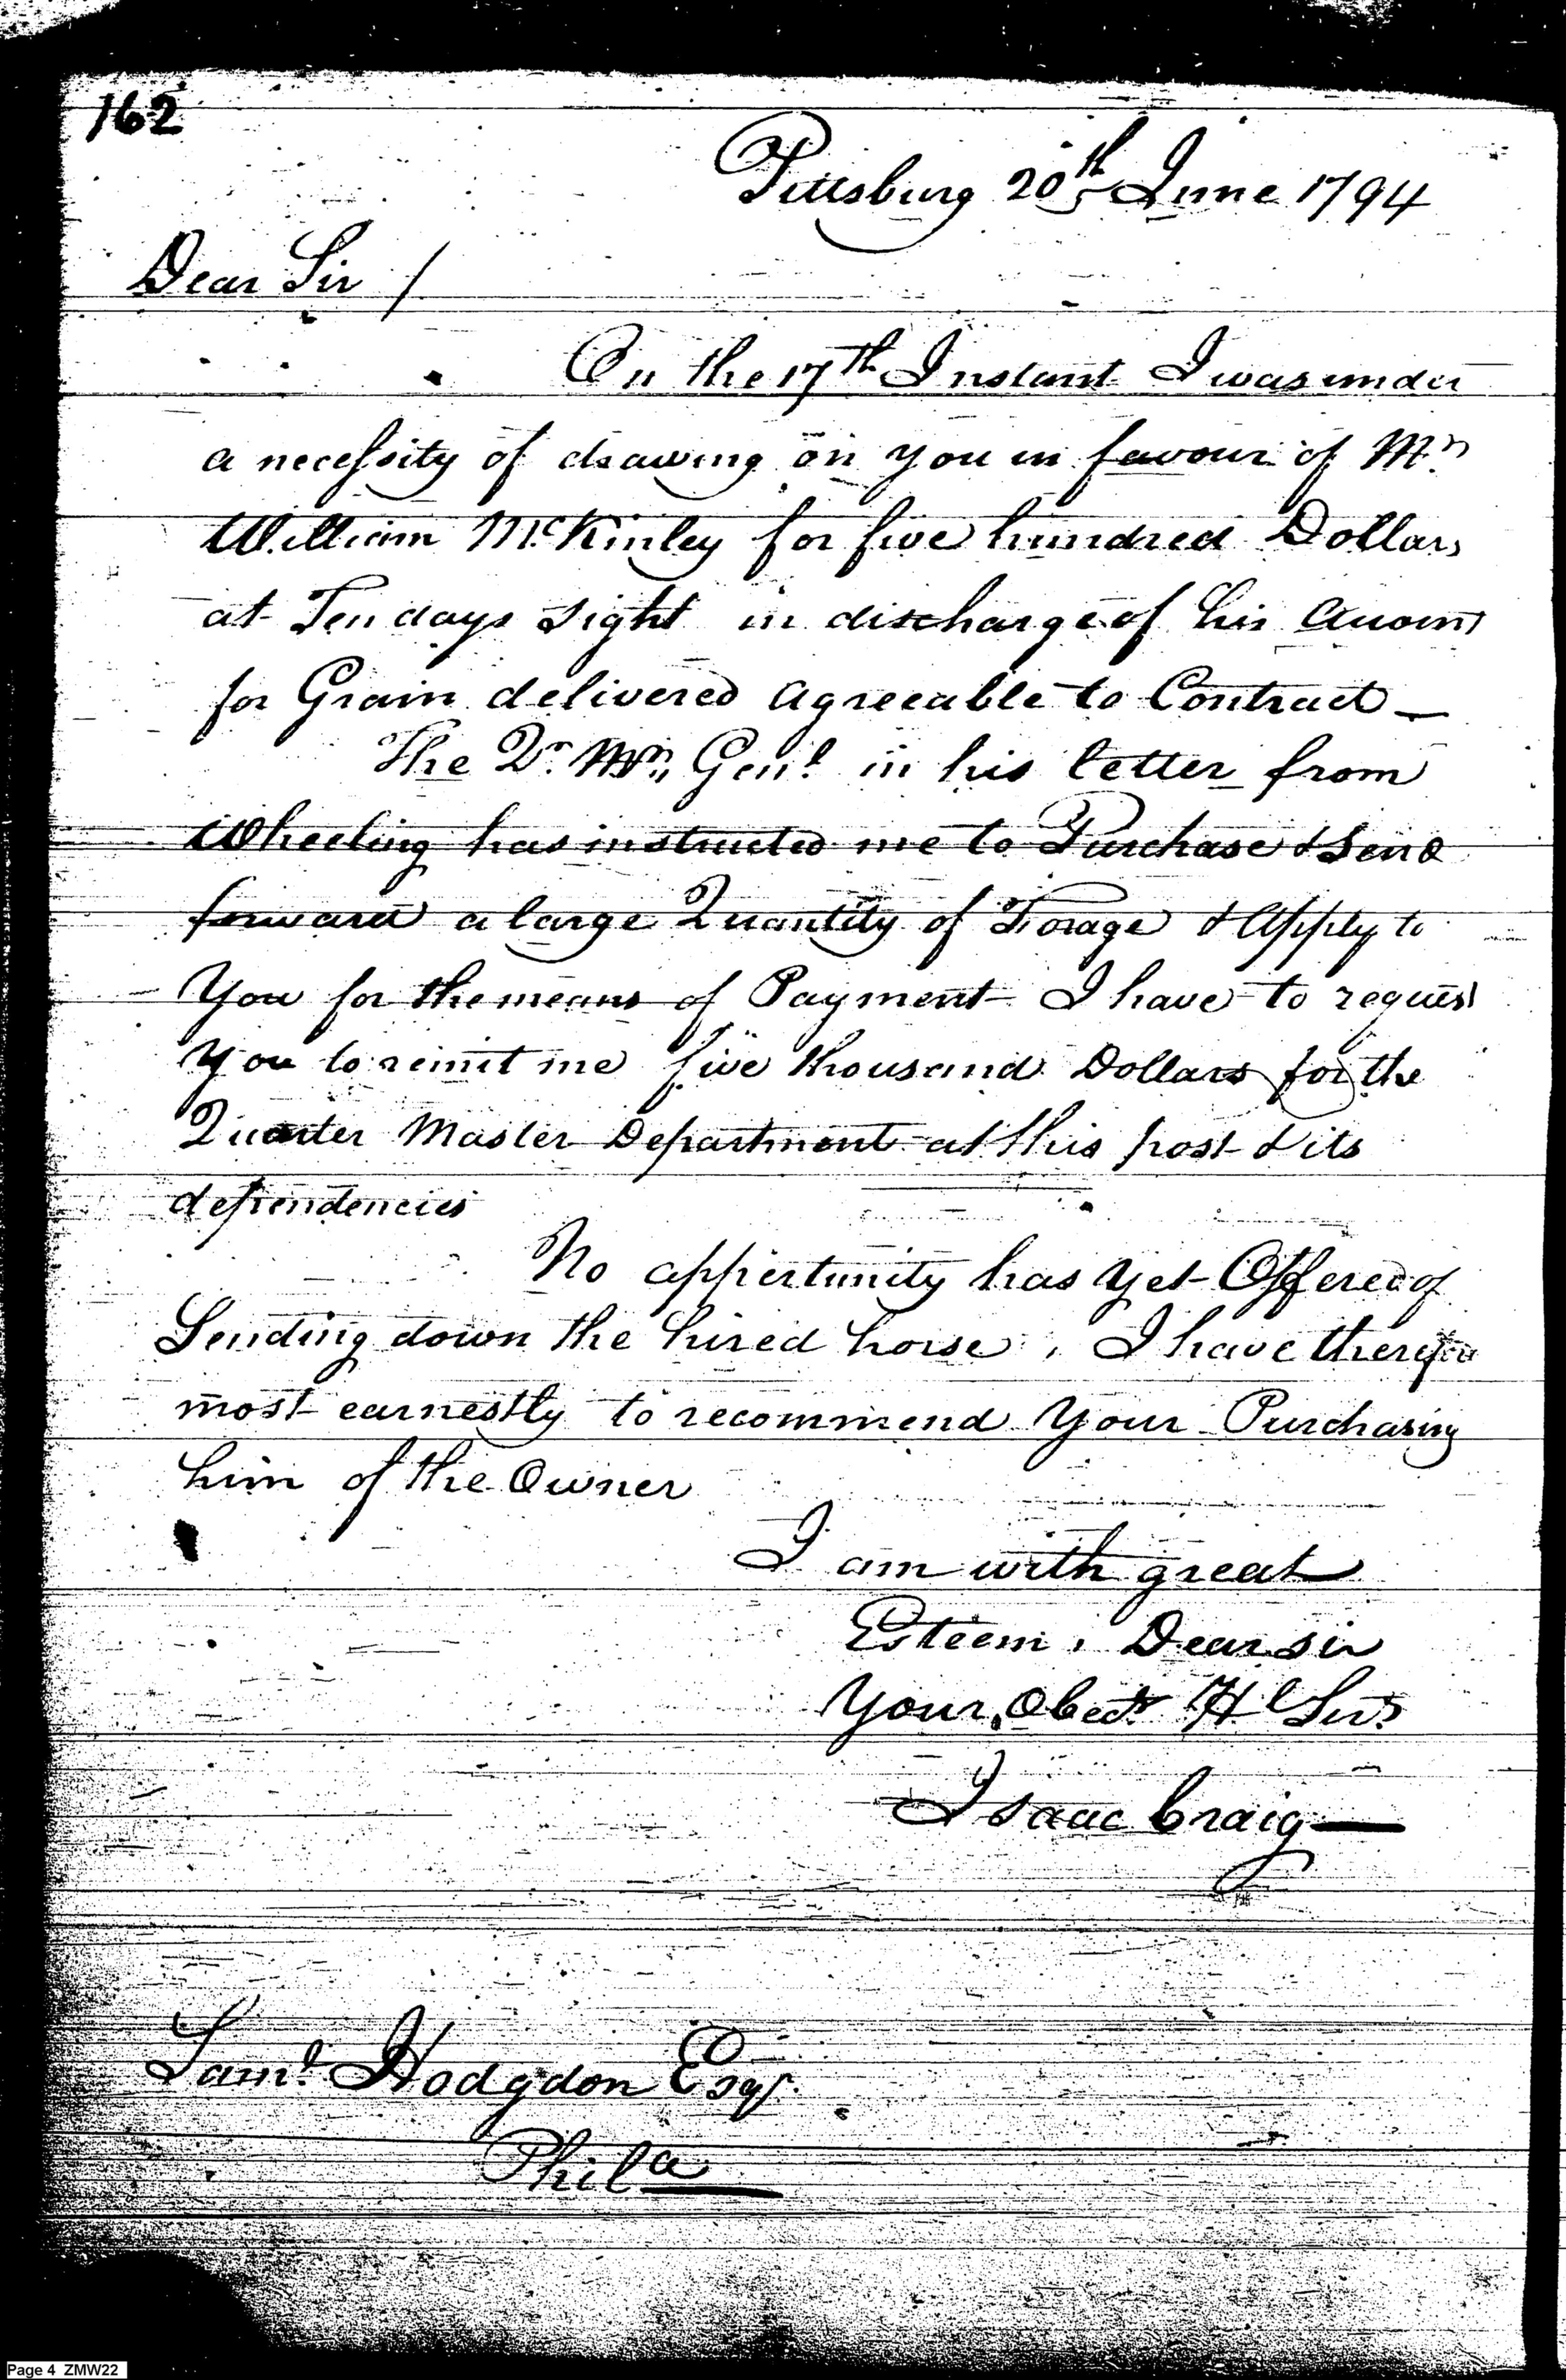 162
Pittsburg 20th June 1794
Dear Sir /
On the 17th Instant I was under
a necessity of drawing on you in favour of Mr
William McKinley for five hundred Dollars
at Ten days sight in discharge of his Account
for Grain delivered agreeable to Contract —
The Qr. Mr. Genl. in his letter from
Wheeling has instructed me to Purchase & Send
forward a large Quantity of Forage & Apply to
You for the means of Payment I have to request
You to remit me five thousand Dollars for the
Quarter Master Department at this post & its
dependencies
No oppertunity has yet Offered of
Sending down the hired horse, I have therefore
most earnestly to recommend Your Purchasing
him of the Owner
I am with great
Esteem, Dear sir
Your Obedt. Hl Servt
Isaac Craig —
Saml. Hodgdon Esqr.
Phila
Page 4 ZMW22